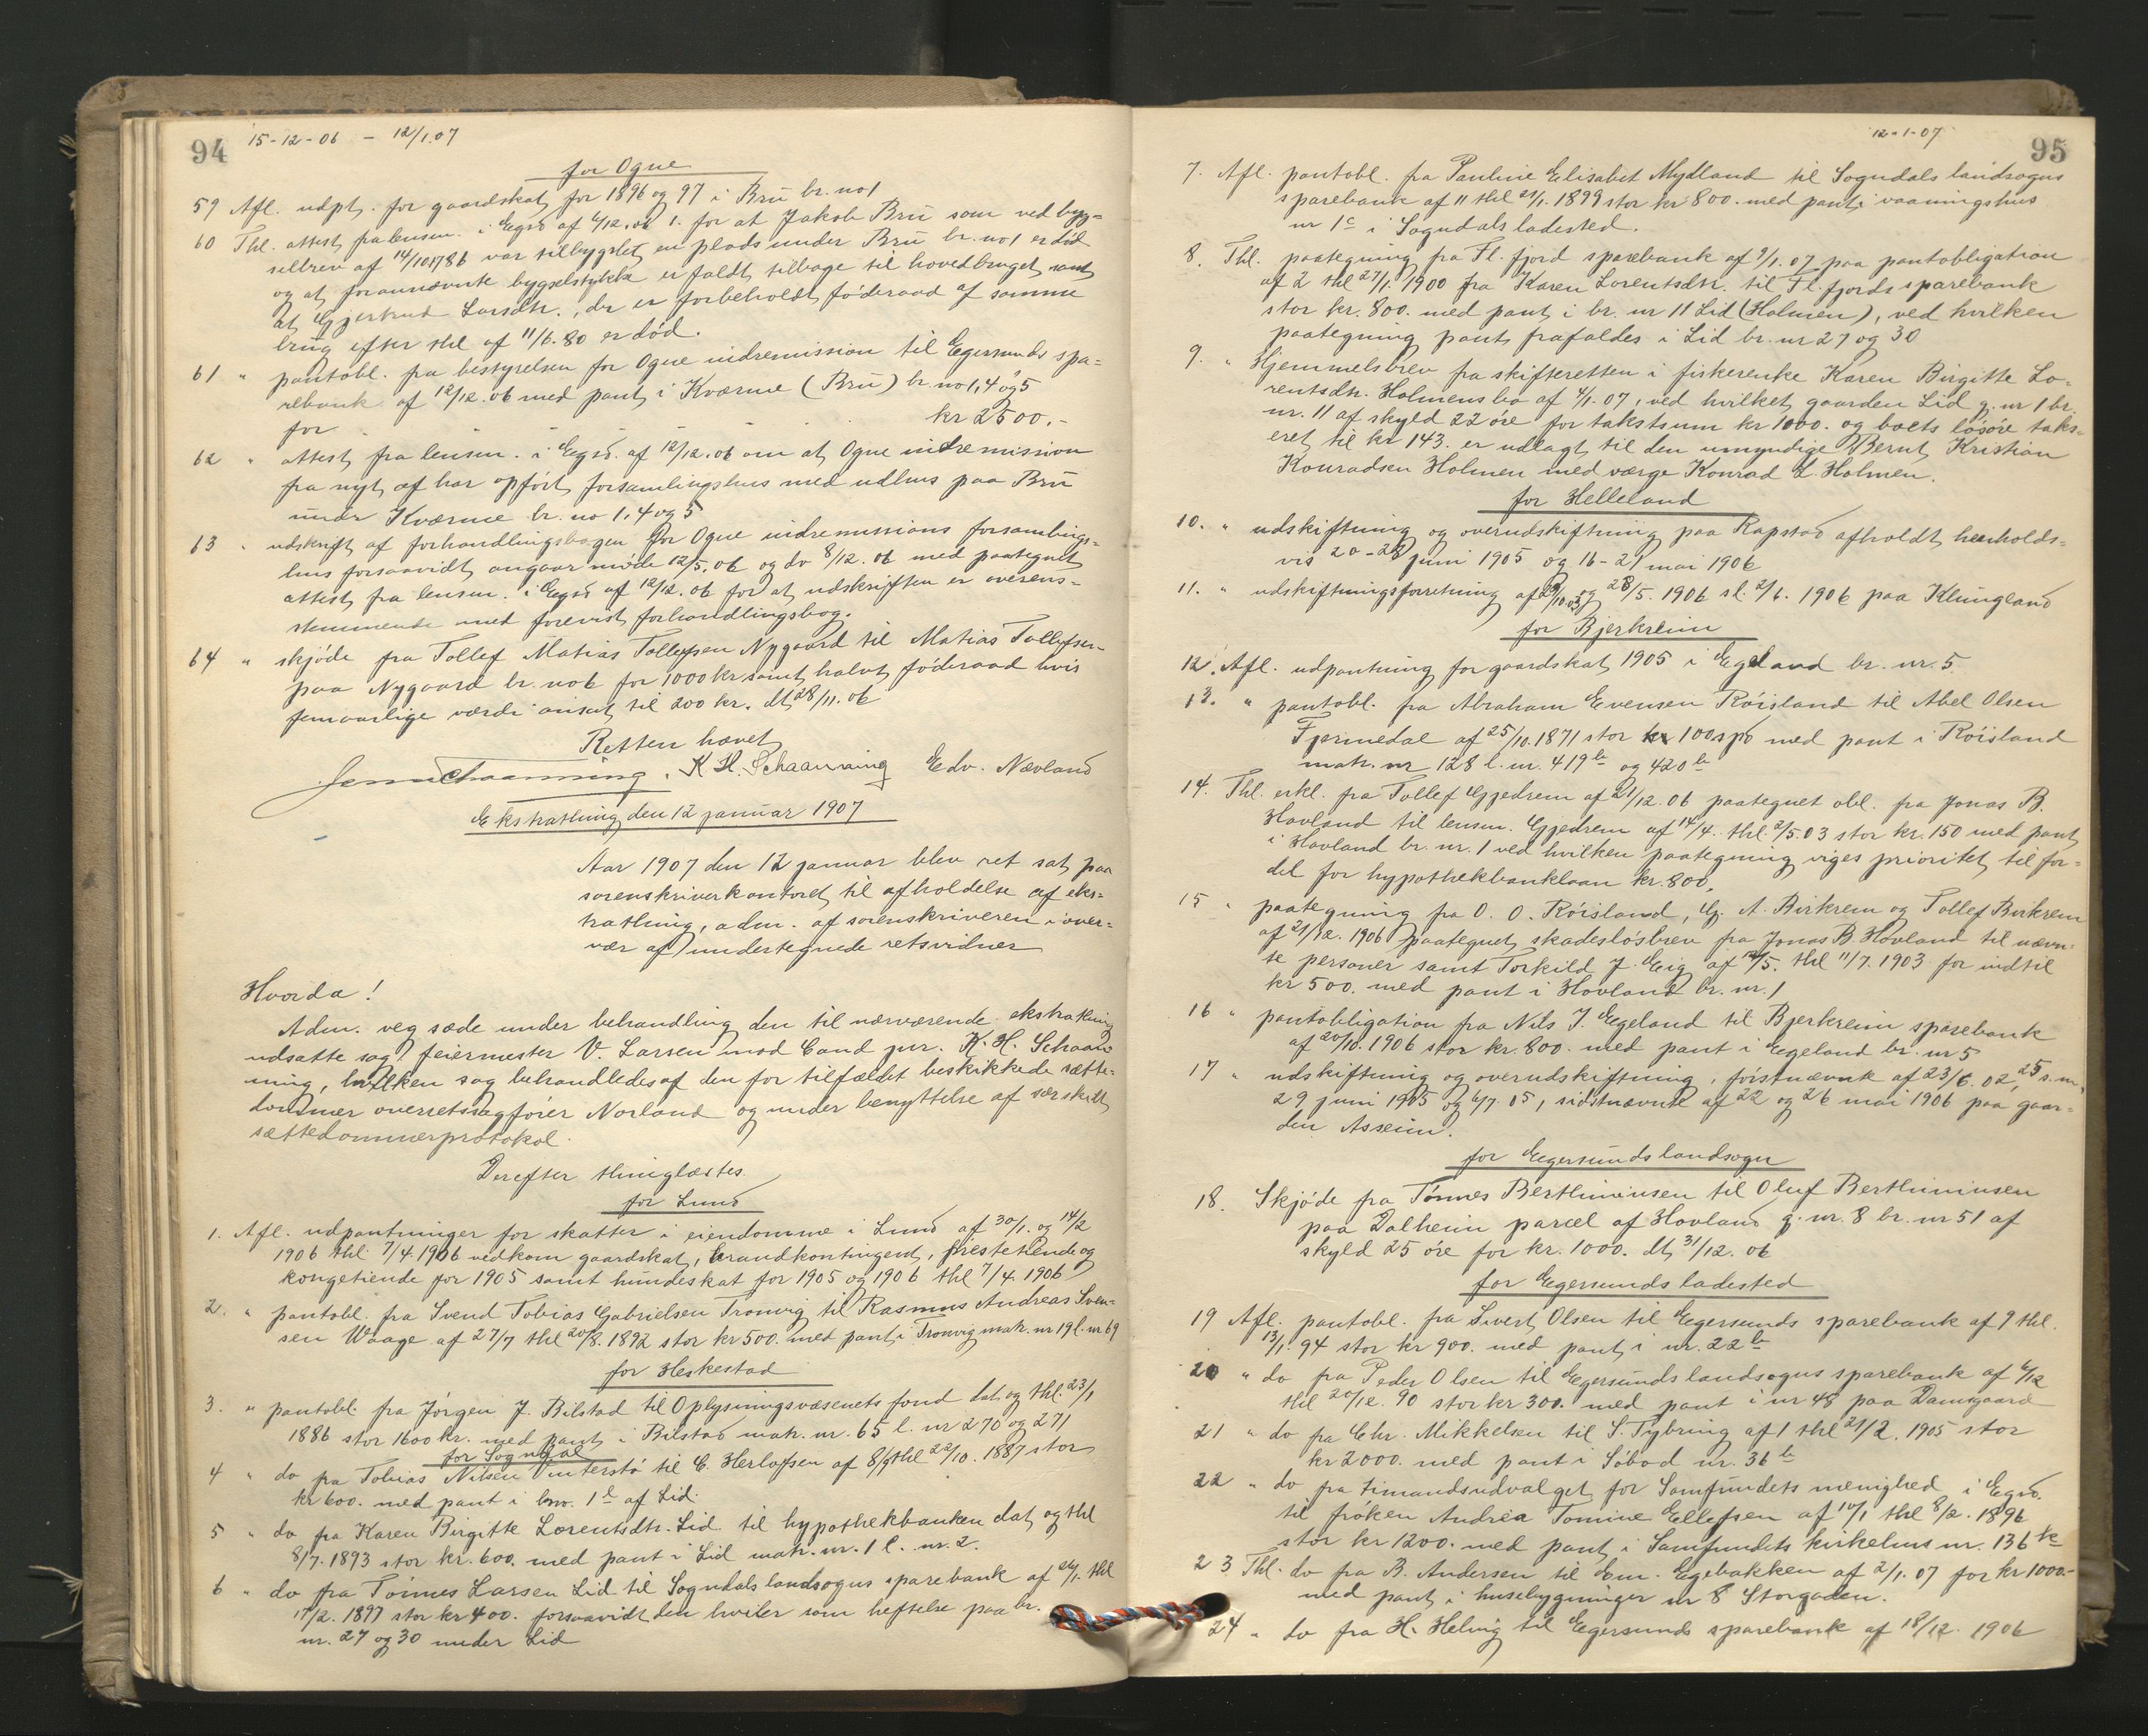 94 15-12-06 - 12/1.07
for Ogne
59 Afl. udpt. for gaardskat for 1896 og 97 i Bru br. no 1
60 Thl. attest fra lensm. i Egrs. af 6/12.06 1. for at Jakob Bru som ved byg=
selbrev af 14/10 1786 var tilbygslet en plads under Bru br. no 1 er död
og at forannævnte bygselstykke er faldt tilbage til hovedbruget samt
at Gjertrud Larsdtr., der er forbeholdt föderaad af samme
brug efter thl af 11/6.80 er död.
61 " pantobl. fra bestyrelsen for Ogne indremission til Egersunds spa=
rebank af 12/12.06 med pant i Kværme (Bru) br. no 1, 4 og 5
for kr 2500.-
62 " attest fra lensm. i Egrs. af 12/12.06 om at Ogne indremission
fra nyt af har opfört forsamlingshus med udhus paa Bru
under Kværme br. no 1, 4 og 5
63 " udskrift af forhandlingsbogen for Ogne indremissions forsamlings=
hus forsaavidt angaar möde 12/5.06 og do 8/12.06 med paategnet
attest fra lensm. i Egrs af 12/12.06 for at udskriften er overens=
stemmende med forevist forhandlingsbog.
64 " skjöde fra Tollef Matias Tollefsen Nygaard til Matias Tollefsen
paa Nygaard br. no 6 for 1000 kr samt halvt föderaad hvis
femaarlige værdi ansat til 200 kr. dt 28/11.06
Retten hævet
Schaanning. K H. Schaanning Edv. Nævland
Ekstrathing den 12 januar 1907
Aar 1907 den 12 januar blev ret sat paa
sorenskriverkontoret til afholdelse af eks=
trathing, adm. af sorenskriveren i over=
vær af undertegnede retsvidner
Hvorda!
Adm. veg sæde under behandling den til nærværende ekstrathing
udsatte sag: feiermester V. Larsen mod Cand jur. K. H. Schaan
ning, hvilken sag behandledes af den for tilfældet beskikkede sætte=
dommer overretssagförer Norland og under benyttelse af særskilt
sættedommerprotokol.
Derefter thinglæstes
for Lund
1. Afl. udpantninger for skatter i eiendomme i Lund af 30/1. og 14/2
1906 thl. 7/4.1906 vedkom gaardskat, brandkontingent, prestetiende og
kongetiende for 1905 samt hundeskat for 1905 og 1906 thl 7/4.1906
2. " pantobl. fra Svend Tobias Gabrielsen Tronvig til Rasmus Andreas Sven=
sen Waage af 27/7 thl 20/8.1892 stor kr 500. med pant i Tronvig matr. nr 19 l. nr 69
for Heskestad
3. " pantobl. fra Jörgen J. Bilstad til Oplysningsvæsenets fond dat og thl. 23/1
1886 stor 1600 kr. med pant i Bilstad matr. nr. 65 l. nr 270 og 271
for Sogndal
4 " do fra Tobias Nilsen Vinterstö til C. Herlofsen af 8/9 thl 22/10.1887 stor
kr 600. med pant i lnr. 1 d af Lid.
5 " do fra Karen Birgitte Lorentsdtr. Lid til hypothekbanken dat og thl
8/7.1893 stor kr. 600. med pant i Lid matr. nr. 1 l. nr. 2.
6 " do fra Tönnes Larsen Lid til Sogndals landsogns sparebank af 26/1. thl
17/2.1897 stor kr 400. forsaavidt den hviler som heftelse paa br.
nr. 27 og 30 under Lid
12-1-07 95
7. Afl. pantobl. fra Pauline Elisabet Mydland til Sogndals landsogns
sparebank af 11 thl 21/1.1899 stor kr 800. med pant i vaaningshus
nr 1c i Sogndals ladested.
8. Thl. paategning fra Fl. fjord sparebank af 9/1.07 paa pantobligation
af 2 thl 27/1.1900 fra Karen Lorentsdtr. til Fl. fjords sparebank
stor kr. 800. med pant i br. nr 11 Lid (Holmen), ved hvilken
paategning pant frafaldes i Lid br. nr 27 og 30
9. " Hjemmelsbrev fra skifteretten i fiskerenke Karen Birgitte Lo=
rentsdtr. Holmens bo af 4/1.07, ved hvilket gaarden Lid g. nr 1 br.
nr. 11 af skyld 22 öre for takstsum kr 1000. og boets lösöre taks=
eret til kr 143. er udlagt til den umyndige Bernt Kristian
Konradsen Holmen med værge Konrad L. Holmen.
for Helleland
10. " udskiftning og overudskiftning paa Rapstad afholdt henholds=
vis 20-28 juni 1905 og 16-21 mai 1906
11. " udskiftningsforretning af og 28/5.1906 sl. 2/6.1906 paa Klungland
for Bjerkreim
12. Afl. udpantning for gaardskat 1905 i Egeland br. nr. 5.
13. " pantobl. fra Abraham Evensen Röisland til Abel Olsen
Fjermedal af 25/10.1871 stor 100 spd med pant i Röisland
matr. nr 128 l. nr. 419b og 420b
14. Thl. erkl. fra Tollef Gjedrem af 21/12.06 paategnet obl. fra Jonas B.
Hovland til lensm. Gjedrem af 14/4. thl. 2/5.03 stor kr. 150 med pant
i Hovland br. nr. 1 ved hvilken paategning viges prioritet til for=
del for hypothekbanklaan kr. 800.
15 " paategning fra O. O. Röisland, G. A. Birkrem og Tollef Birkrem
af 21/12.1906 paategnet skadeslösbrev fra Jonas B. Hovland til nævn=
te personer samt Torkild J. Eeig af 14/5. thl 11/7.1903 for indtil
kr 500. med pant i Hovland br. nr. 1
16 " pantobligation fra Nils J. Egeland til Bjerkreim sparebank
af 20/10.1906 stor kr. 800. med pant i Egeland br. nr 5
17 " udskiftning og overudskiftning, förstnævnte af 23/6.02, 25 s. m.
29 juni 1905 og 6/7 05, sidstnævnte af 22 og 26 mai 1906 paa gaar=
den Asseim.
for Egersunds landsogn
18. Skjöde fra Tönnes Berthiniusen til Oluf Berthiniusen
paa Dalheim parcel af Hovland g. nr. 8 br. nr 51 af
skyld 25 öre for kr. 1000. dt 31/12.06
for Egersunds ladested
19 Afl. pantobl. fra Sivert Olsen til Egersunds sparebank af 9 thl.
13/1.94 stor kr 900. med pant i nr. 22b
20 " do fra Peder Olsen til Egersunds landsogns sparebank af 6/12
thl 20/12.90 stor kr 300. med pant i nr 48 paa Damsgaard
21 " do fra Chr. Mikkelsen til S. Tybring af 1 thl 21/2.1905 stor
kr 2000. med pant i Söbod nr. 36 b
22 " do fra timandsudvalget for Samfundets menighed i Egrs.
til fröken Andrea Tomine Ellefsen af 10/1 thl 8/2.1896
stor kr 1200. med pant i Samfundets kirkehus nr. 136
23 Thl. do fra B. Andersen til Em. Egebakken af 2/1.07 for kr 1000.-
med pant i husebygninger nr 8 Storgaden.
24 " do fra H. Helvig til Egersunds sparebank af 18/12.1906